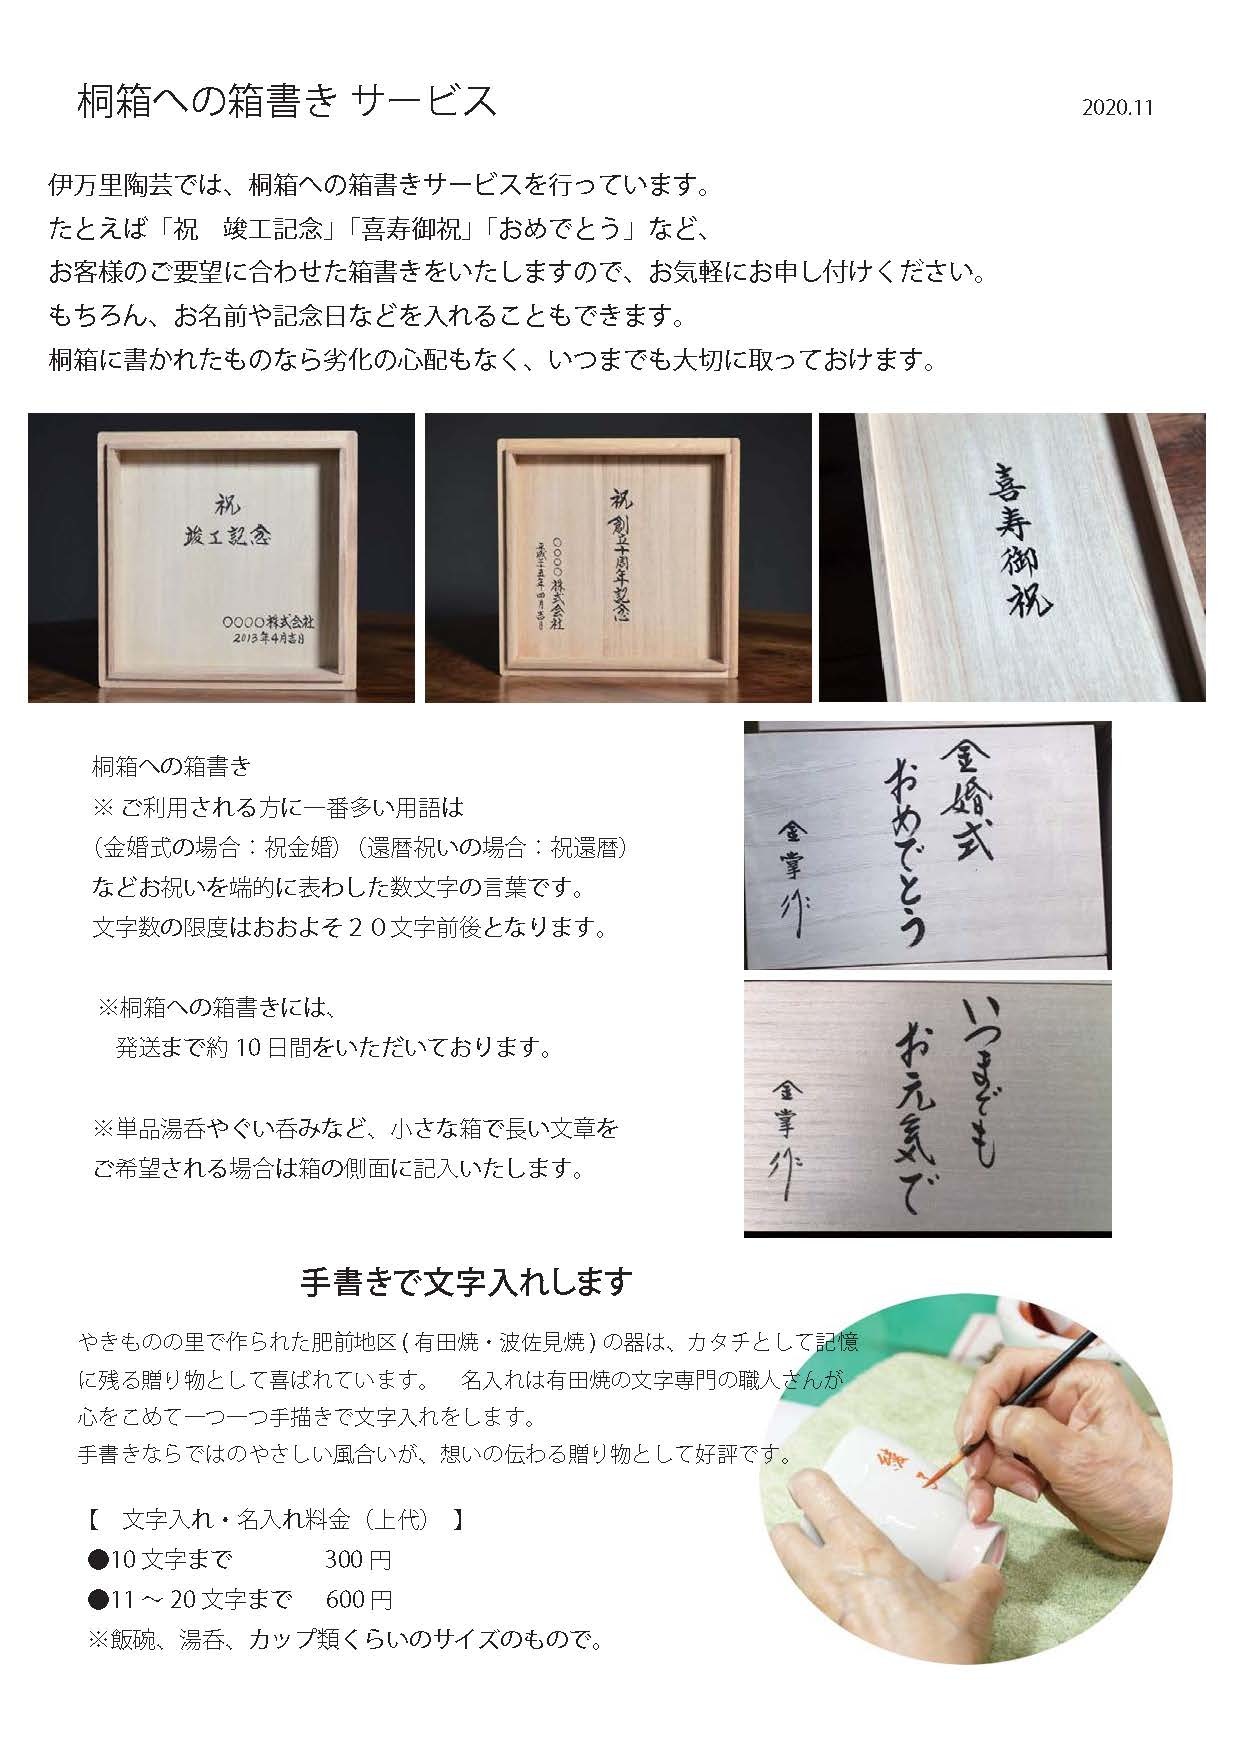 桐箱への箱書き サービス
2020.11
伊万里陶芸では、桐箱への箱書きサービスを行っています。
たとえば「祝　竣工記念」「喜寿御祝」「おめでとう」など、
お客様のご要望に合わせた箱書きをいたしますので、お気軽にお申し付けください。
もちろん、お名前や記念日などを入れることもできます。
桐箱に書かれたものなら劣化の心配もなく、いつまでも大切に取っておけます。
祝
竣工記念
〇〇〇〇株式会社
2013年4月吉日
祝 創立十周年記念
〇〇〇〇株式会社
平成二五年四月吉日
喜寿御祝
桐箱への箱書き
※ ご利用される方に一番多い用語は
（金婚式の場合：祝金婚）（還暦祝いの場合：祝還暦）
などお祝いを端的に表わした数文字の言葉です。
文字数の限度はおおよそ２０文字前後となります。
※桐箱への箱書きには、
発送まで約 10 日間をいただいております。
※単品湯呑やぐい呑みなど、小さな箱で長い文章を
ご希望される場合は箱の側面に記入いたします。
金婚式
おめでとう
金掌作
いつまでも
お元気で
金掌作
手書きで文字入れします
やきものの里で作られた肥前地区 ( 有田焼・波佐見焼 ) の器は、カタチとして記憶
に残る贈り物として喜ばれています。　名入れは有田焼の文字専門の職人さんが
心をこめて一つ一つ手描きで文字入れをします。
手書きならではのやさしい風合いが、想いの伝わる贈り物として好評です。
【　文字入れ・名入れ料金（上代）　】
●10 文字まで　300 円
●11 ～ 20 文字まで　600 円
※飯碗、湯呑、カップ類くらいのサイズのもので。